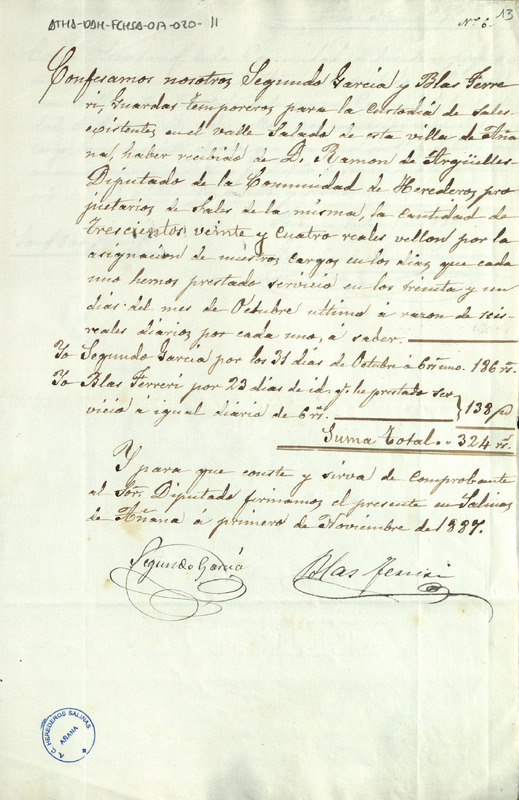 ATHA-DAH-FCHSA-017-020-11
13
N.º 6.
Confesamos nosotros Segundo García y Blas Ferre
ri, Guardas temporeros para la custodia de sales
existentes en el valle salado de esta villa de Aña
na, haber recibido de D. Ramon de Argüelles
Diputado de la Comunidad de Herederos pro
pietarios de sales de la misma, la cantidad de
trescientos veinte y cuatro reales vellon por la
asignacion de nuestros cargos en los dias que cada
uno hemos prestado servicio en los treinta y un
dias del mes de Octubre ultimo á razon de seis
reales diarios por cada uno, á saber.
Yo Segundo García por los 31 dias de Octubre á 6 rs. uno. 186 rs.
Yo Blas Ferreri por 23 dias de id. q.e he prestado ser
vicio á igual diario de 6 rs. 138
Suma Total. " 324 rs.
Y para que conste y sirva de comprobante
al Sor. Diputado firmamos el presente en Salinas
de Añana á primero de Noviembre de 1887.
Segundo García
Blas Ferreri
A. C. HEREDEROS SALINAS
AÑANA